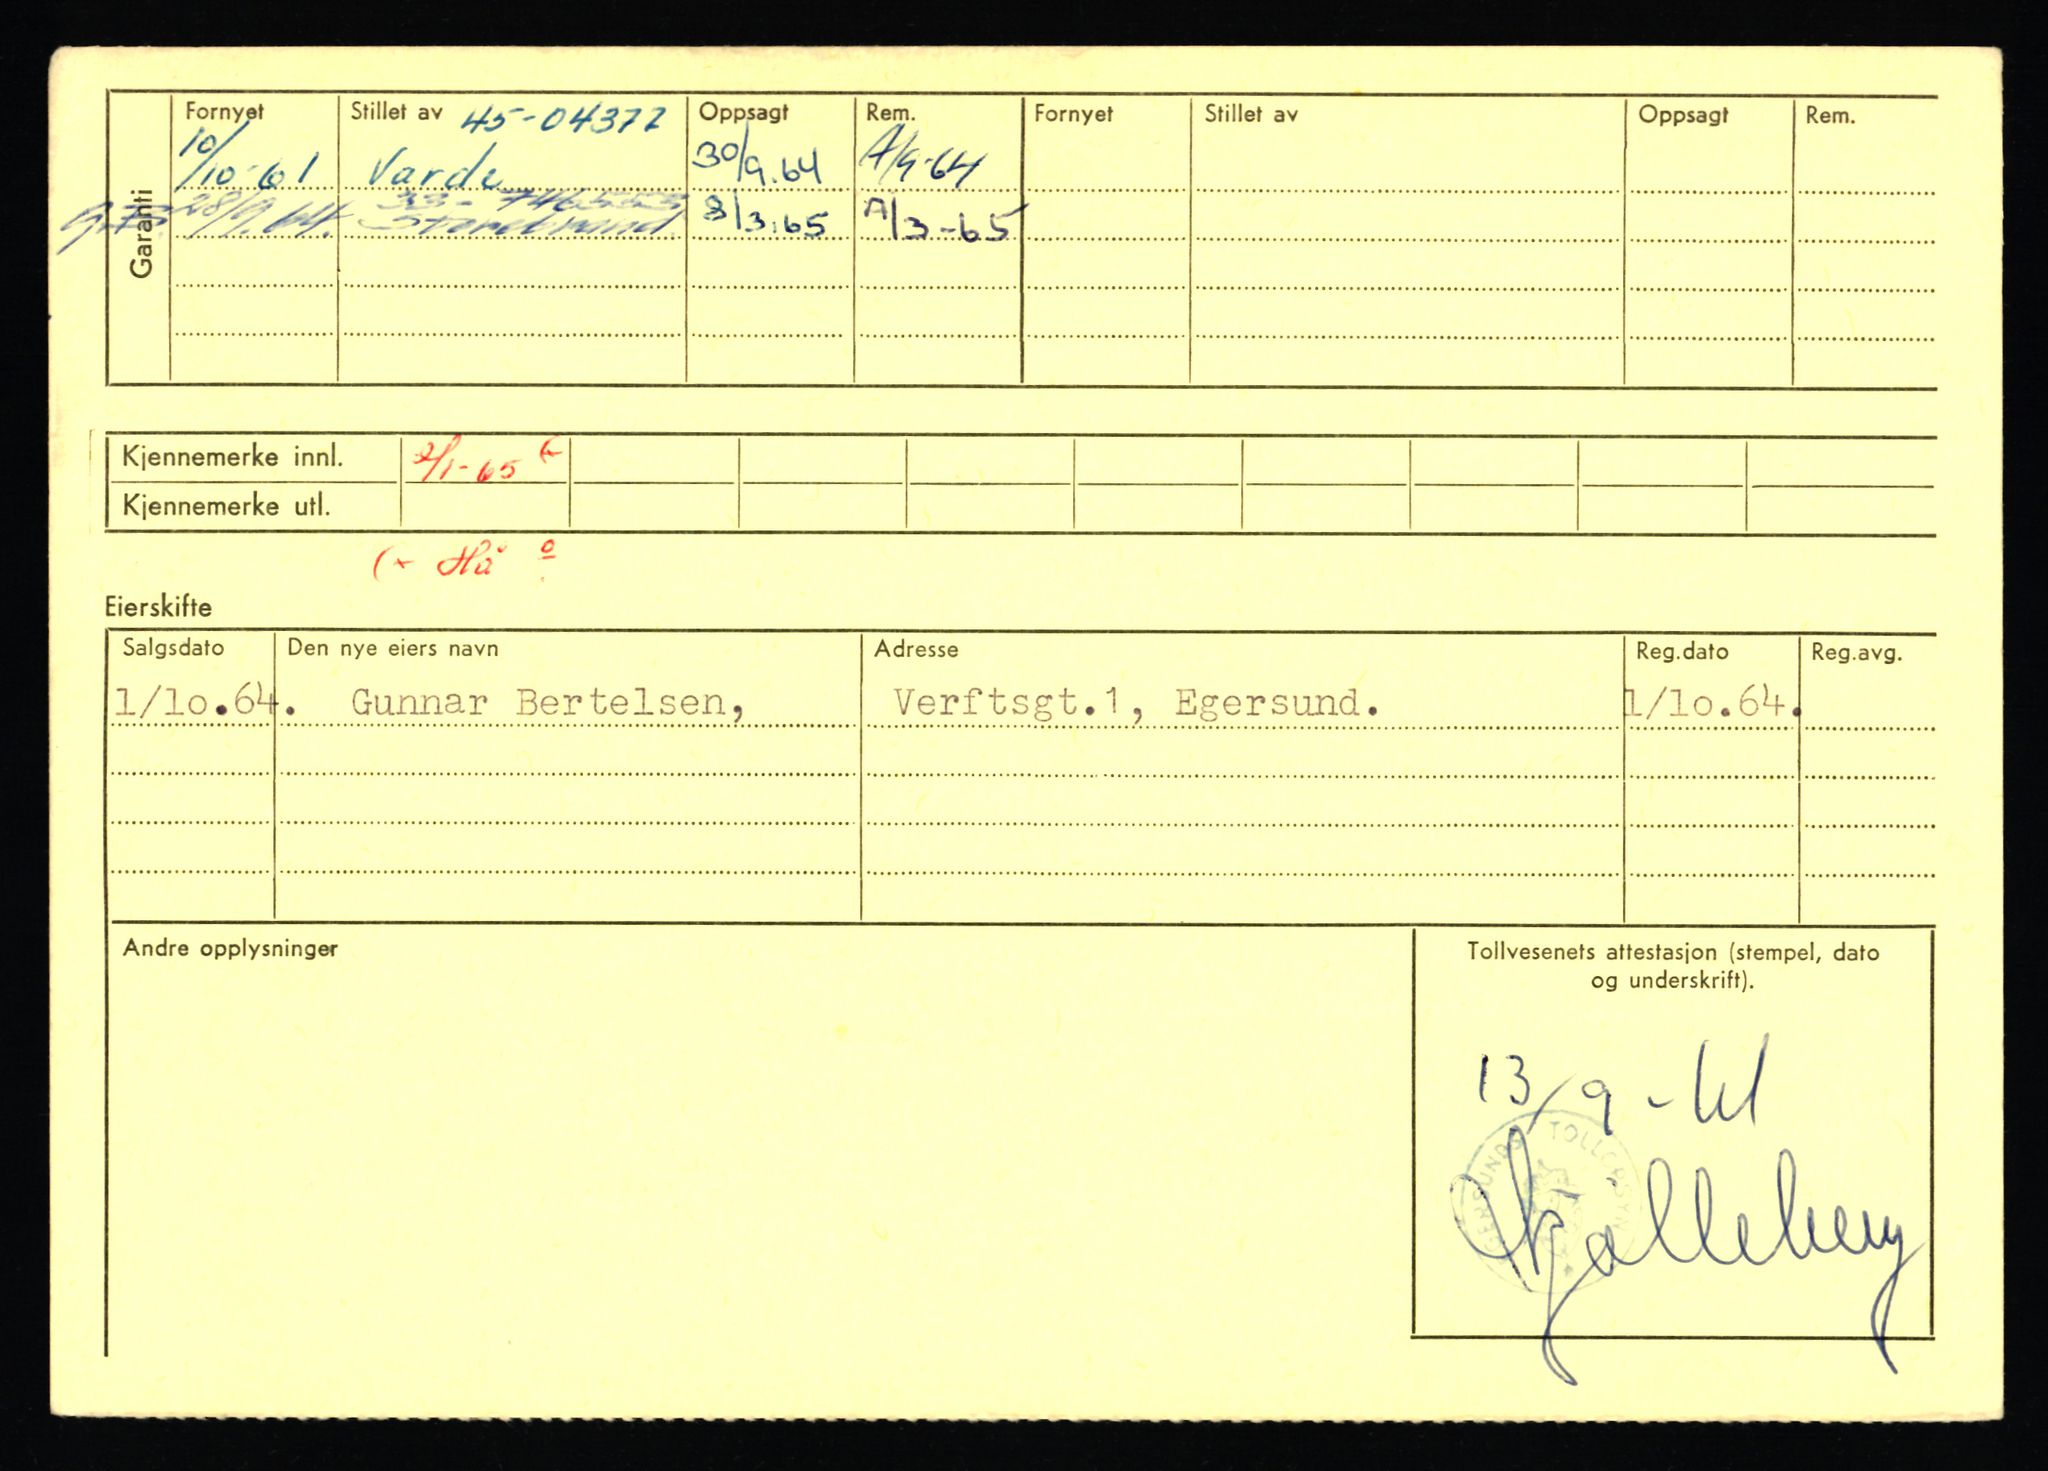 Garanti
Fornyet Stillet av 45-04372 Oppsagt Rem. Fornyet Stillet av Oppsagt Rem.
10/10-61 Varde 30/9.64 A/9-64
28/9.64. Storebrand 8/3.65 A/3-65
Kjennemerke innl. 2/1-65
Kjennemerke utl.
Hå
Eierskifte
Salgsdato Den nye eiers navn Adresse Reg.dato Reg.avg.
1/1o.64. Gunnar Bertelsen, Verftsgt.1, Egersund. 1/1o.64.
Andre opplysninger
Tollvesenets attestasjon (stempel, dato
og underskrift).
13/9-61